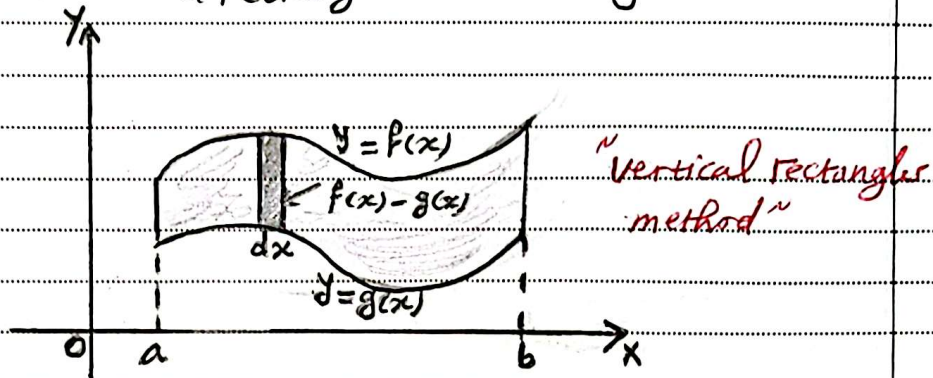 Y
y = f(x)
f(x) - g(x)
dx
y = g(x)
0 a b X
"vertical rectangles
method"